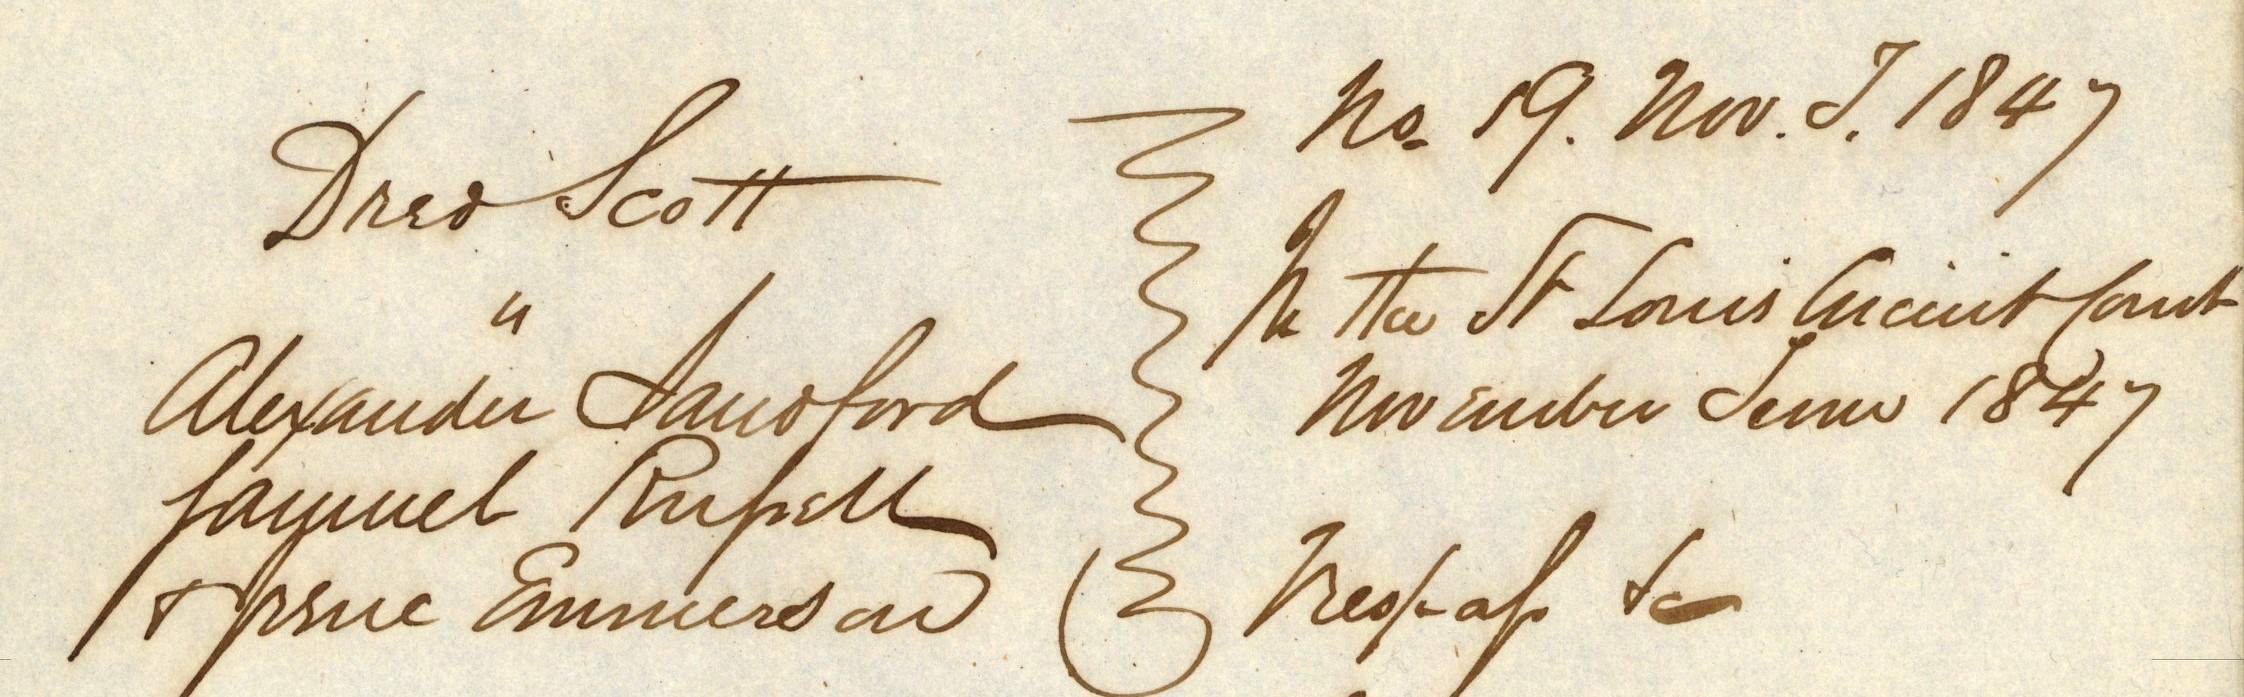 Dred Scott
"
Alexander Sandford
Samuel Russell
& Irene Emmerson
No. 59. Nov. T. 1847
In the St Louis Circuit Court
November Term 1847
Trespass &c